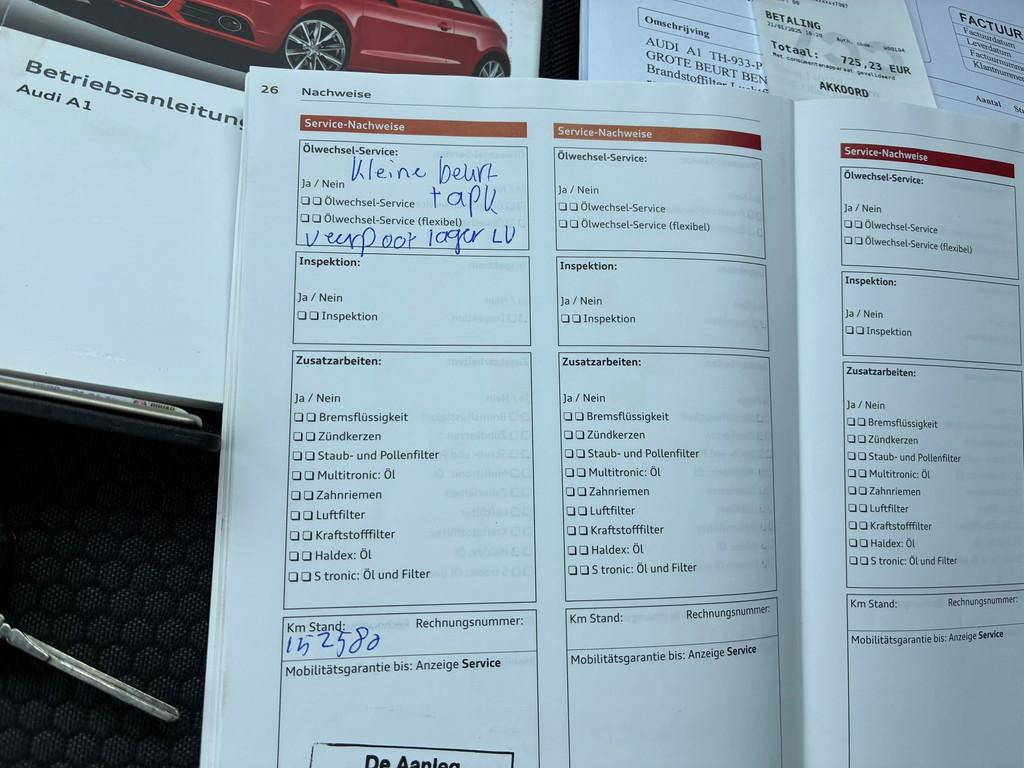 Betriebsanleitung
Audi A1
Omschrijving
AUDI A1 TH-933-P
GROTE BEURT BEN
Brandstoffilter
BETALING
21/01/2025 16:20
Auth. code:
Totaal: 725,23 EUR
AKKOORD
FACTUUR
Factuurdatum
Leverdatum
Factuurnummer
Klantnummer
Aantal
26 Nachweise
Service-Nachweise
Ölwechsel-Service:
Kleine beurt
Ja / Nein
+ apk
Ölwechsel-Service
Ölwechsel-Service (flexibel)
veerpoot lager LV
Inspektion:
Ja / Nein
Inspektion
Zusatzarbeiten:
Ja / Nein
Bremsflüssigkeit
Zündkerzen
Staub- und Pollenfilter
Multitronic: Öl
Zahnriemen
Luftfilter
Kraftstofffilter
Haldex: Öl
S tronic: Öl und Filter
Km Stand: Rechnungsnummer:
152580
Mobilitätsgarantie bis: Anzeige Service
De Aanleg
Service-Nachweise
Ölwechsel-Service:
Ja / Nein
Ölwechsel-Service
Ölwechsel-Service (flexibel)
Inspektion:
Ja / Nein
Inspektion
Zusatzarbeiten:
Ja / Nein
Bremsflüssigkeit
Zündkerzen
Staub- und Pollenfilter
Multitronic: Öl
Zahnriemen
Luftfilter
Kraftstofffilter
Haldex: Öl
S tronic: Öl und Filter
Km Stand: Rechnungsnummer:
Mobilitätsgarantie bis: Anzeige Service
Service-Nachweise
Ölwechsel-Service:
Ja / Nein
Ölwechsel-Service
Ölwechsel-Service (flexibel)
Inspektion:
Ja / Nein
Inspektion
Zusatzarbeiten:
Ja / Nein
Bremsflüssigkeit
Zündkerzen
Staub- und Pollenfilter
Multitronic: Öl
Zahnriemen
Luftfilter
Kraftstofffilter
Haldex: Öl
S tronic: Öl und Filter
Km Stand: Rechnungsnummer:
Mobilitätsgarantie bis: Anzeige Service